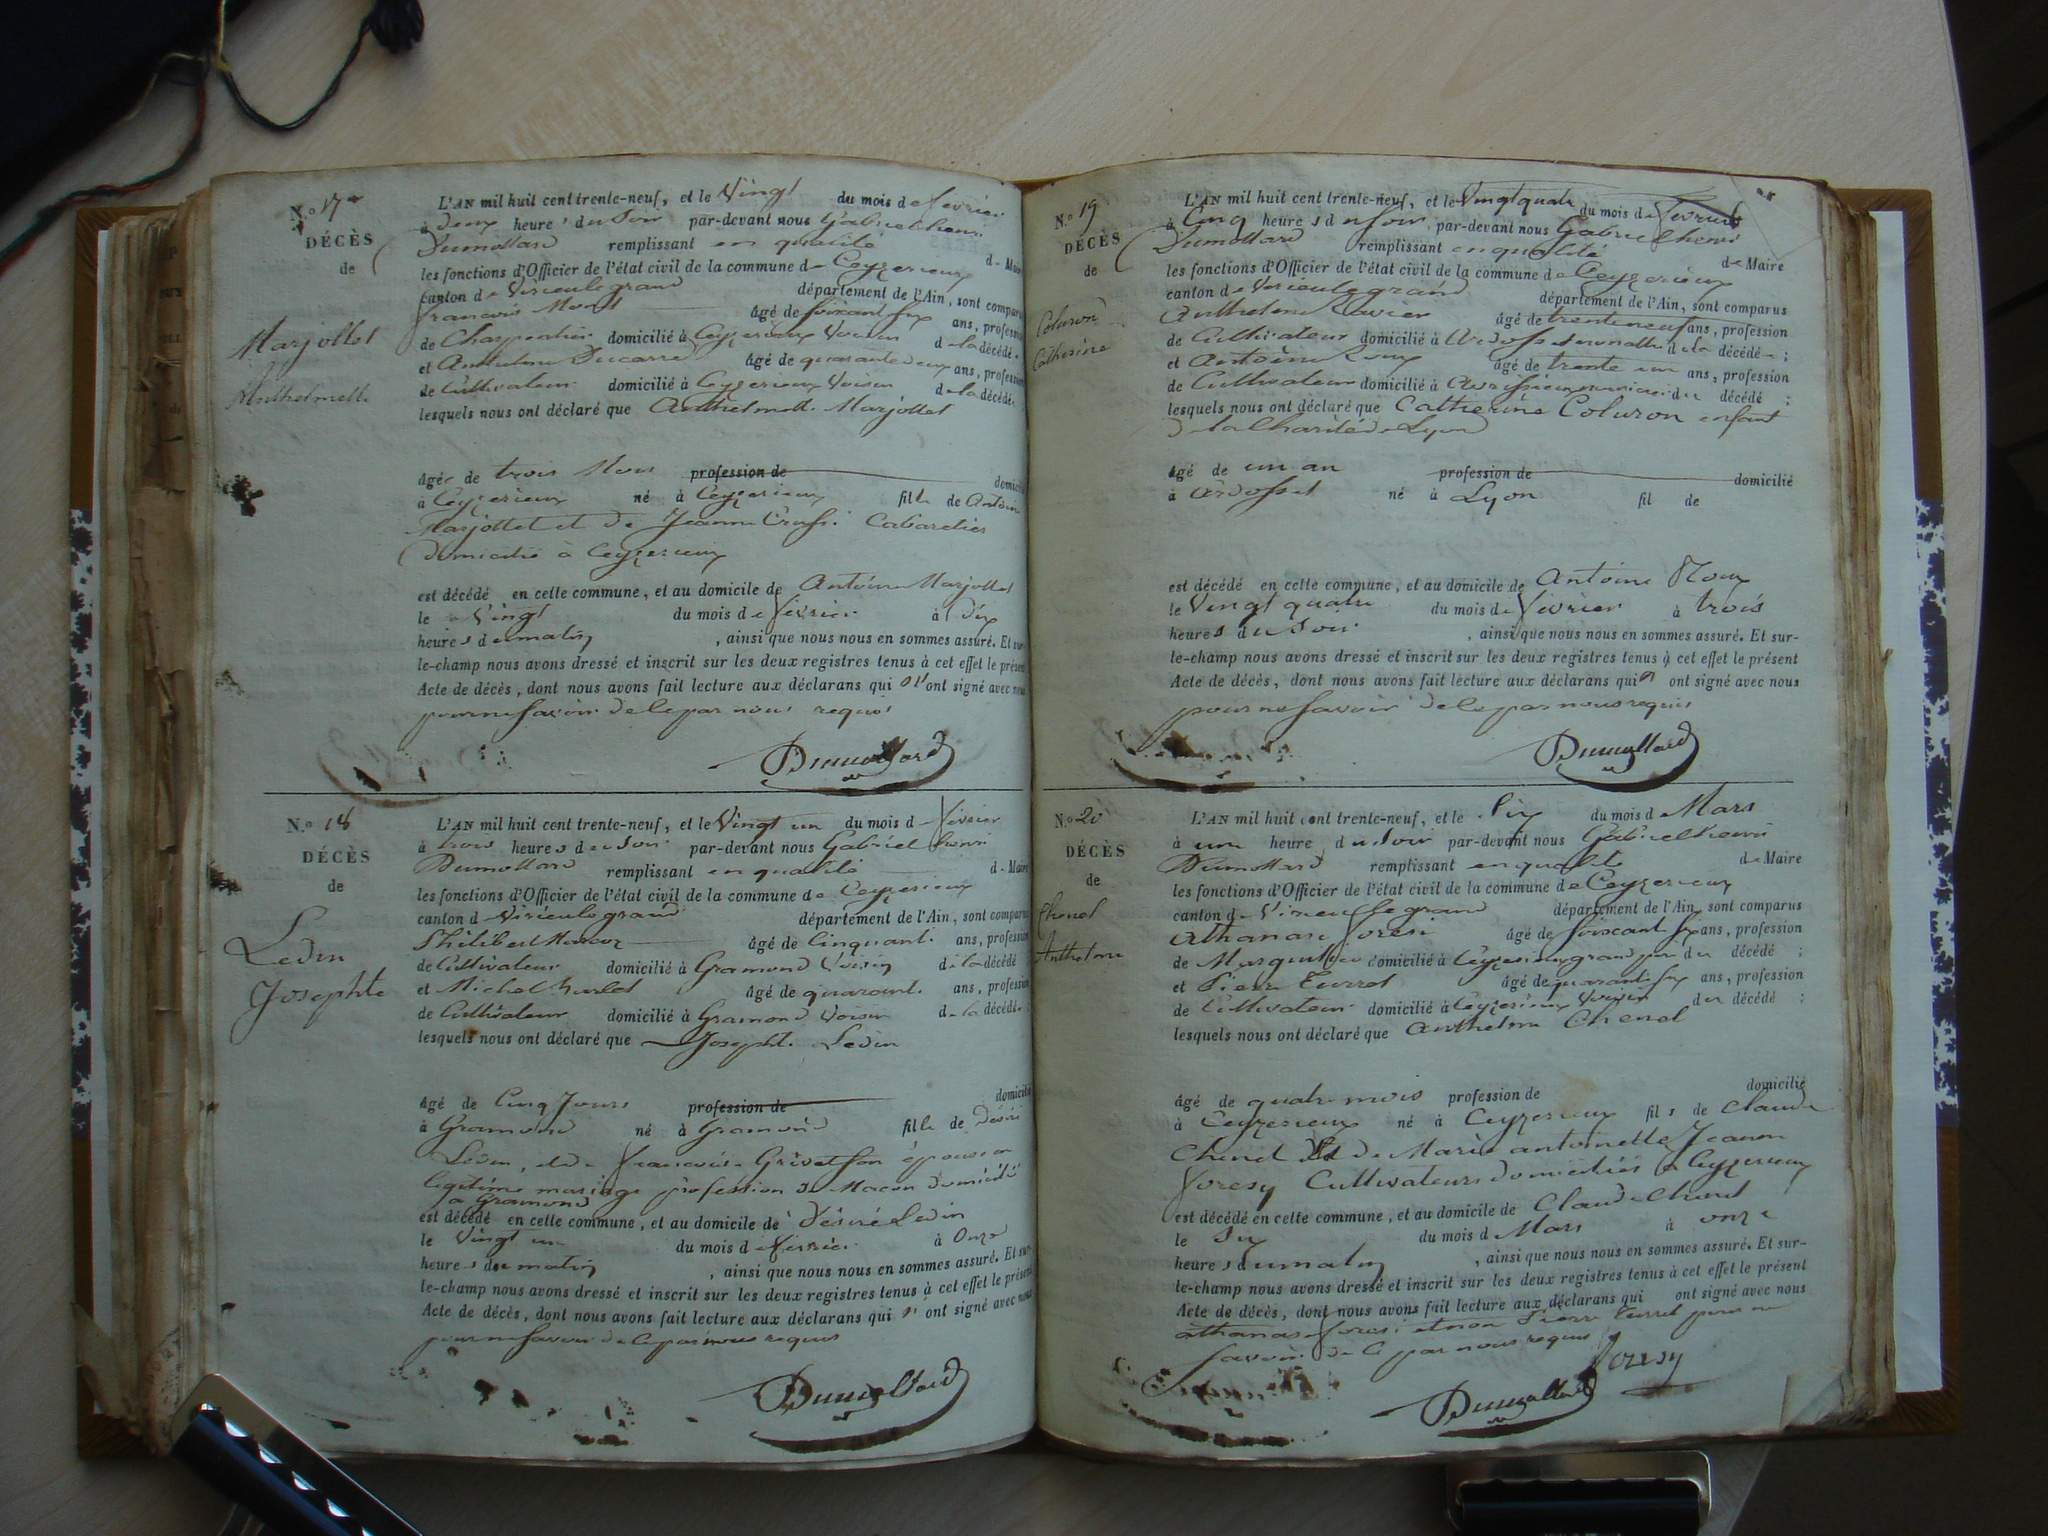 N.o 17
DÉCÈS
de
Marjollet
Anthelmette
L'AN mil huit cent trente-neuf, et le Vingt du mois de fevrier
à deux heures du Soir par-devant nous Gabriel henri
Dumollard remplissant en qualité de Maire
les fonctions d'Officier de l'état civil de la commune de Ceyzerieux
canton de Virieu le grand département de l'Ain, sont comparus
francois âgé de soixant six ans, profession
de Charpentier domicilié à Ceyzerieux Voisin de la décédée
et Anthelme Ducarre âgé de quarante deux ans, profession
de Cultivateur domicilié à Ceyzerieux Voisin de la décédée
lesquels nous ont déclaré que Anthelmette Marjollet
âgée de trois Mois profession de domicilié
à Ceyzerieux né à Ceyzerieux fille de Antoine
Marjollet et de Jeanne Cabaretier
domicilié à Ceyzerieux
est décédé en cette commune, et au domicile de Antoine Marjollet
le Vingt du mois de fevrier à Dix
heures du matin , ainsi que nous nous en sommes assuré. Et sur-
le-champ nous avons dressé et inscrit sur les deux registres tenus à cet effet le présent
Acte de décès, dont nous avons fait lecture aux déclarans qui n'ont signé avec nous
pour ne savoir de le par nous requis
Dumollard
N.o 18
DÉCÈS
de
Ledin
Josephte
L'AN mil huit cent trente-neuf, et le Vingt un du mois de fevrier
à trois heures du Soir par-devant nous Gabriel henri
Dumollard remplissant en qualité de Maire
les fonctions d'Officier de l'état civil de la commune de Ceyzerieux
canton de Virieu le grand département de l'Ain, sont comparus
Philibert âgé de Cinquante ans, profession
de Cultivateur domicilié à Gramond Voisin de la décédé
et Michel âgé de quarante ans, profession
de Cultivateur domicilié à Gramond Voisin de la décédée
lesquels nous ont déclaré que Josephte Ledin
âgé de Cinq Jours profession de domicilié
à Gramond né à Gramond fille de Désiré
Ledin, et de francoise son épouse en
légitime mariage profession de Macon domicilié
à Gramond
est décédé en cette commune, et au domicile de Désiré Ledin
le Vingt un du mois de fevrier à Onze
heures du matin , ainsi que nous nous en sommes assuré. Et sur-
le-champ nous avons dressé et inscrit sur les deux registres tenus à cet effet le présent
Acte de décès, dont nous avons fait lecture aux déclarans qui n'ont signé avec nous
pour ne savoir de le par nous requis
Dumollard
N.o 19
DÉCÈS
de
Coluron
Catherine
L'AN mil huit cent trente-neuf, et le Vingt quatre du mois de fevrier
à Cinq heures du soir par-devant nous Gabriel henri
Dumollard remplissant en qualité de Maire
les fonctions d'Officier de l'état civil de la commune de Ceyzerieux
canton de Virieu le grand département de l'Ain, sont comparus
Anthelme âgé de trente neuf ans, profession
de Cultivateur domicilié à Ardosset de la décédée ;
et Antoine Roux âgé de trente un ans, profession
de Cultivateur domicilié à du décédé ;
lesquels nous ont déclaré que Catherine Coluron enfant
de la Charité de Lyon
âgé de un an profession de domicilié
à Ardosset né à Lyon fil de
est décédé en cette commune, et au domicile de Antoine Roux
le Vingt quatre du mois de fevrier à trois
heures du Soir , ainsi que nous nous en sommes assuré. Et sur-
le-champ nous avons dressé et inscrit sur les deux registres tenus à cet effet le présent
Acte de décès, dont nous avons fait lecture aux déclarans qui n ont signé avec nous
pour ne savoir de le par nous requis
Dumollard
N.o 20
DÉCÈS
de
Chenel
Anthelme
L'AN mil huit cent trente-neuf, et le Six du mois d Mars
à une heure du Soir par-devant nous Gabriel henri
Dumollard remplissant en qualité de Maire
les fonctions d'Officier de l'état civil de la commune de Ceyzerieux
canton de Virieu le grand département de l'Ain, sont comparus
Athanase foresi âgé de soixant six ans, profession
de Marguillier domicilié à Ceyzerieux grand père du décédé ;
et Pierre Turrel âgé de quarante six ans, profession
de Cultivateur domicilié à Ceyzerieux Voisin du décédé ;
lesquels nous ont déclaré que Anthelme Chenel
âgé de quatre mois profession de domicilié
à Ceyzerieux né à Ceyzerieux fils de Claude
Chenel et de Marie antoinette Jeanne
foresy Cultivateurs domiciliés à Ceyzerieux
est décédé en cette commune, et au domicile de Claude Chenel
le Six du mois d Mars à onze
heures du matin , ainsi que nous nous en sommes assuré. Et sur-
le-champ nous avons dressé et inscrit sur les deux registres tenus à cet effet le présent
Acte de décès, dont nous avons fait lecture aux déclarans qui ont signé avec nous
athanase foresi et non Pierre Turrel pour ne
savoir de le par nous requis
foresy
Dumollard